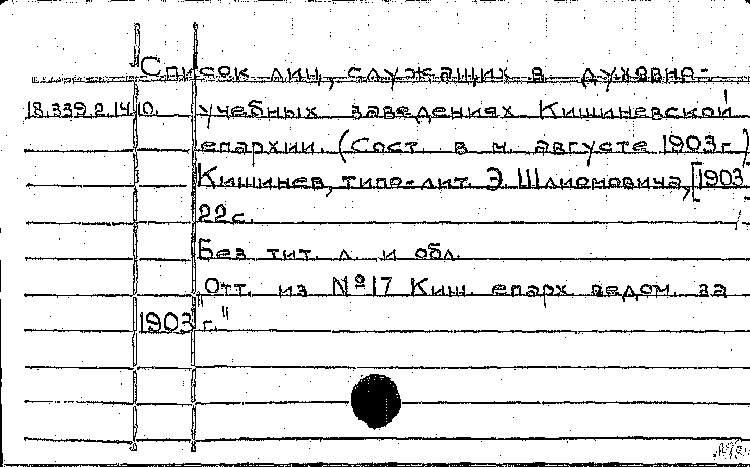 Список лиц, служащих в духовно-
18.339.2.1410. учебных заведениях Кишиневской
епархии. (Сост. в м. августе 1903 г.)
Кишинев, типо-лит. Э. Шлиомовича, [1903
22 с.
Без тит. л. и обл.
"Отт. из № 17 Киш. епарх. ведом. за
1903 г."